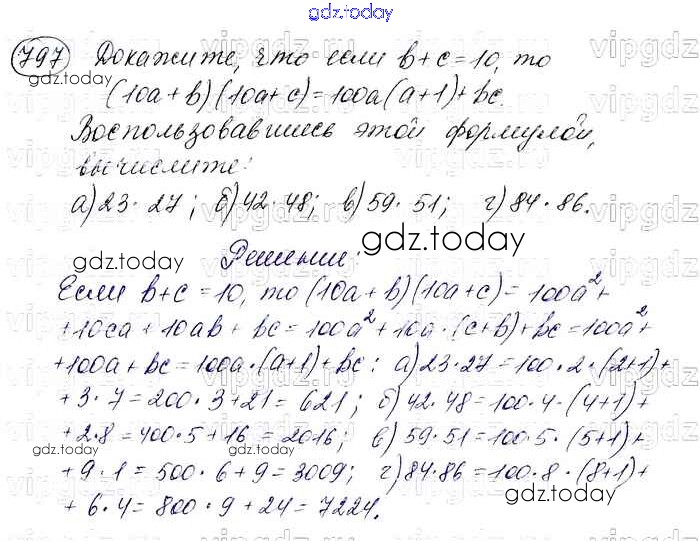 gdz.today
797 Докажите, что если b+c=10, то
(10a+b)(10a+c)=100a(a+1)+bc.
Воспользовавшись этой формулой,
вычислите:
а) 23·27; б) 42·48; в) 59·51; г) 84·86.
Решение:
Если b+c=10, то (10a+b)(10a+c)=100a²+
+10ca+10ab+bc=100a²+10a·(c+b)+bc=100a²+
+100a+bc=100a·(a+1)+bc: а) 23·27=100·2·(2+1)+
+3·7=200·3+21=621; б) 42·48=100·4·(4+1)+
+2·8=400·5+16=2016; в) 59·51=100·5·(5+1)+
+9·1=500·6+9=3009; г) 84·86=100·8·(8+1)+
+6·4=800·9+24=7224.
gdz.today
gdz.today
gdz.today
gdz.today
gdz.today
gdz.today
gdz.today